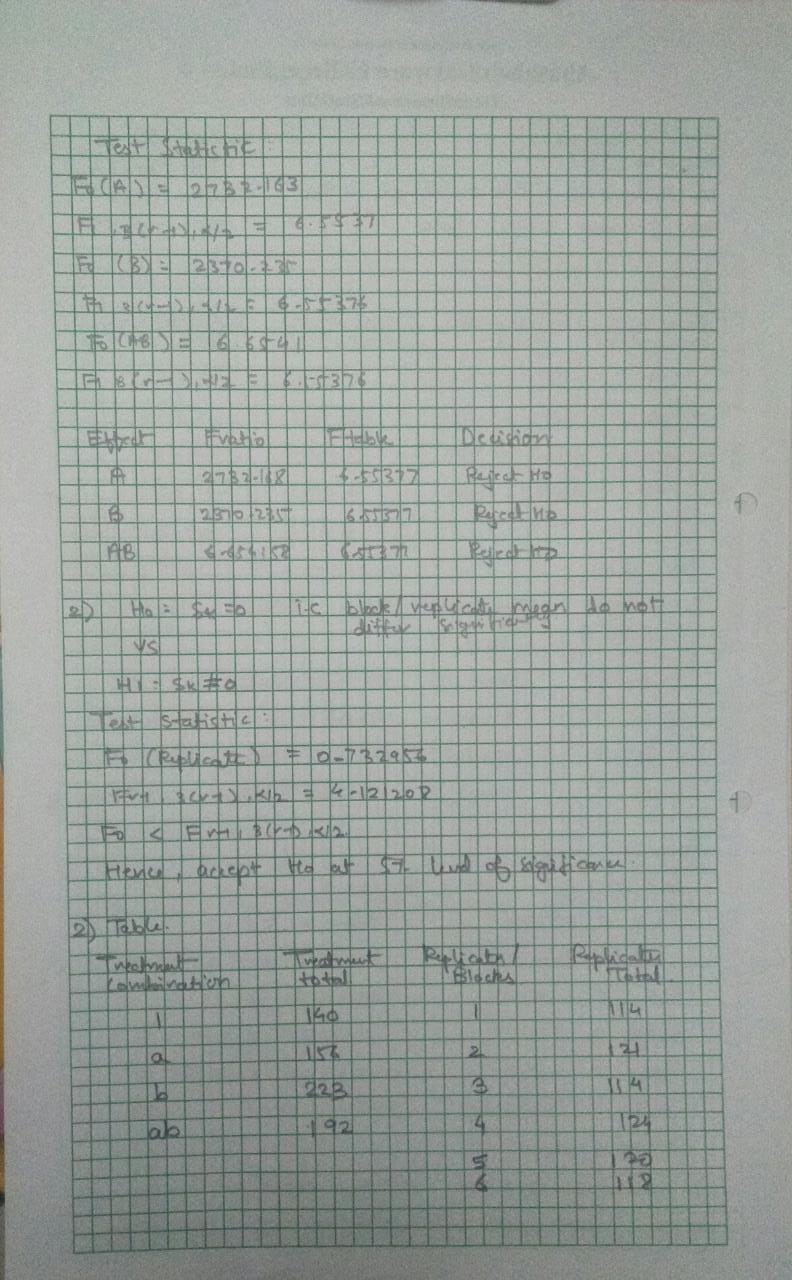 Test Statictic
F0 (A) = 2732.163
F1, 3(r-1), α/2 = 6.5537
F0 (B) = 2370.235
F1 3(r-1), α/2 = 6.55376
F0 (AB) = 6.6541
F1 3(r-1), α/2 = 6.55376
Effect Fratio Ftable Decision
A 2732.168 6.55377 Reject H0
B 2370.235 6.55377 Reject H0
AB 6.654158 6.55377 Reject H0
2) H0 = Sk = 0 i.e block/replicate mean do not differ significantly
VS
H1 = Sk ≠ 0
Test Statistic :
F0 (Replicate) = 0.732956
Fr-1, 3(r-1), α/2 = 4.121208
F0 < Fr-1, 3(r-1), α/2
Hence, accept H0 at 5% level of significance.
2) Table.
Treatment combination Treatment total Replicates/Blocks Replicates Total
1 140 1 114
a 156 2 121
b 223 3 114
ab 192 4 124
5 120
6 118